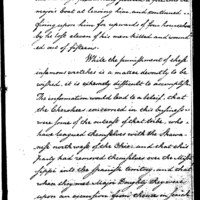 negro boat at leaving him, and continued
firing upon him for upwards of four hours when
he left eleven of his men killed and wound-
ed out of fifteen.
While the punishment of these
infamous wretches is a matter devoutly to be
wished, it is extremely difficult to accomplish.
The information would lead to a belief, that
the Cherokees concerned in this
were some of the outcast of that tribe, who
have leagued themselves with the Shawa-
nese north west of the Ohio: and that this
party had removed themselves over the Missi-
sippi into the Spanish territory; and that
when they met Major Doughty they were
upon an excursion from thence